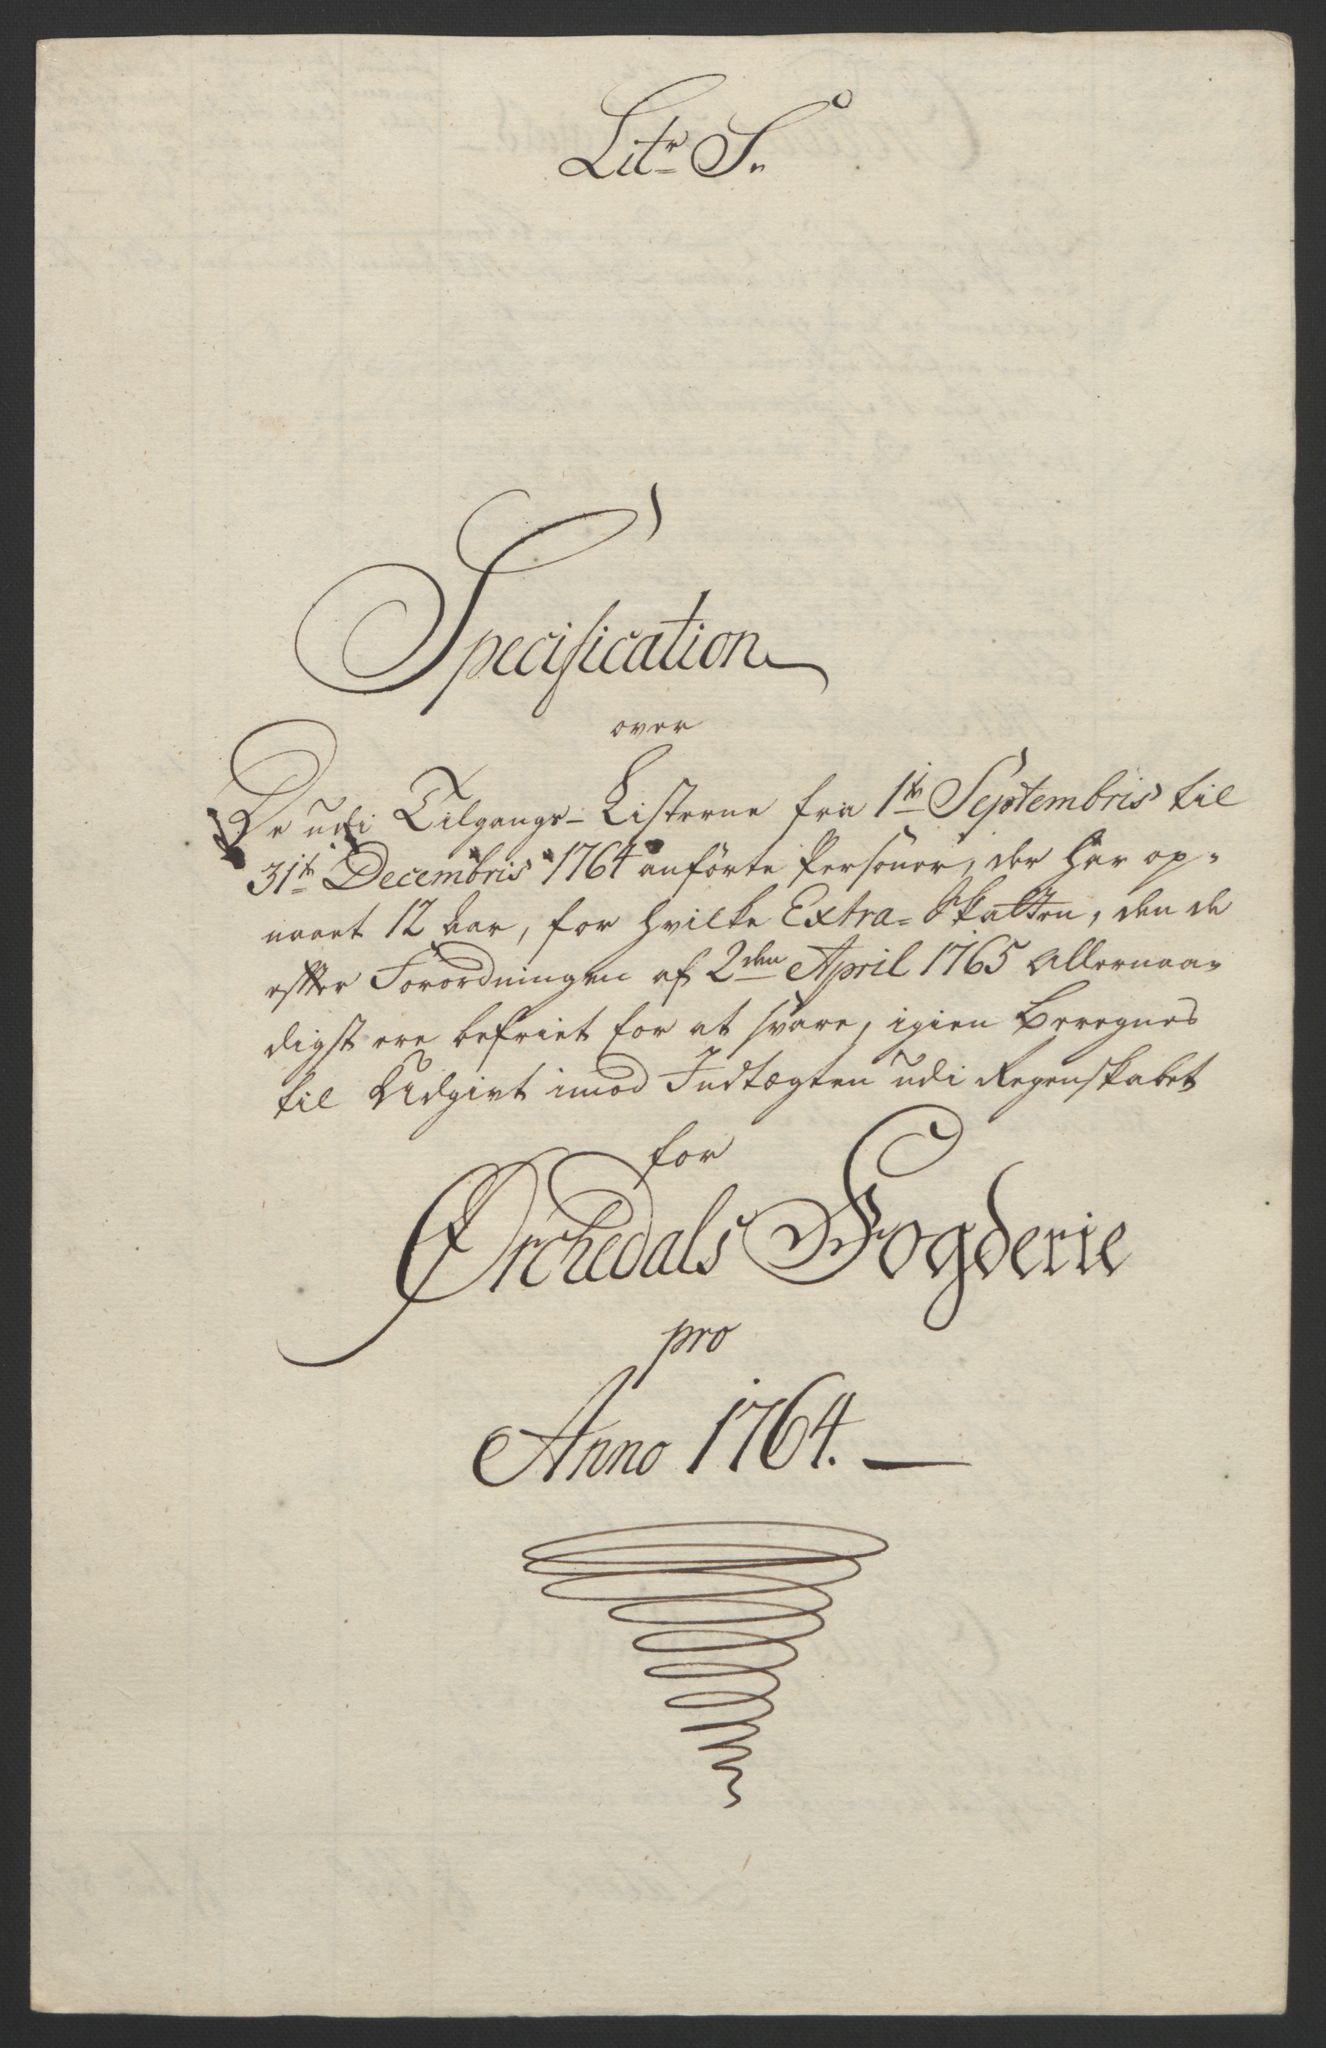 Litr S.
Specification
over
De udi Tilgangs-Listerne fra 1te Septembris til
31te Decembris 1764 anförte Personer, der har op=
naaet 12 aar, for hvilke Extra=Skatten, den de
efter Forordningen af 2den April 1765 Allernaa=
digst ere befriet for at svare, igien Beregnes
til Udgivt imod Indtægten udi Regenskabet
for
Ørchedals Fogderie
pro
Anno 1764.